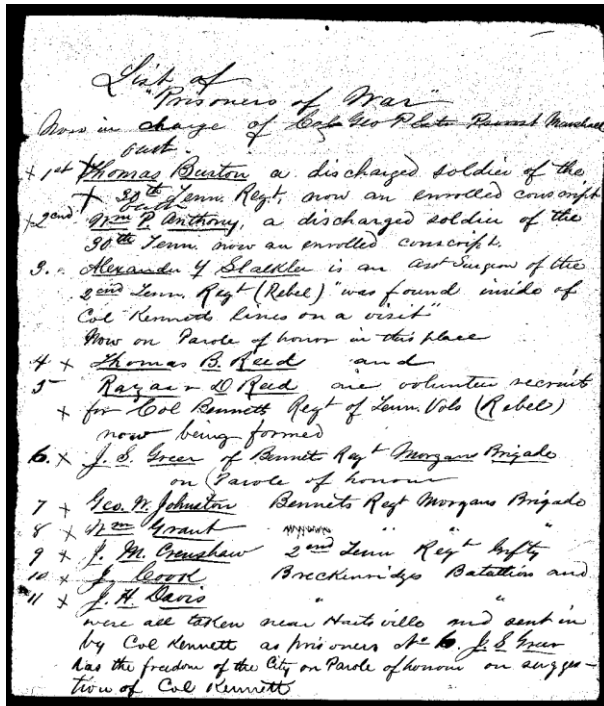 List of
"Prisoners of War"
Now in charge of Geo Marshall
oath
x 1st Thomas Burton a discharged soldier of the
x 30th Tenn. Regt, now an enrolled conscript
oath
x 2end Wm P. Anthony, a discharged soldier of the
30th Tenn. now an enrolled conscript.
3. Alexander is an asst Surgeon of the
2end Tenn. Regt (Rebel) "was found inside of
Col Kennetts lines on a visit"
Now on Parole of honor in this place
4 x Thomas B. Reed and
5 D Reed are volunteer recruit
x for Col Bennett Regt of Tenn. Vols (Rebel)
now being formed
6. x J. S. Greer of Bennet Regt Morgans Brigade
on Parole of honour
7 x Geo. W. Johnston Bennets Regt Morgans Brigade
8 x Wm Grant " " "
9 x J. M. Crenshaw 2end Tenn Regt Infty
10 x Jy Cook Breckenridges Batallion and
11 x J. H. Davis "
were all taken near Hartsville and sent in
by Col Kennett as prisoners No 6. J. S. Greer
has the freedom of the City on Parole of honour on sugges-
tion of Col Kennett